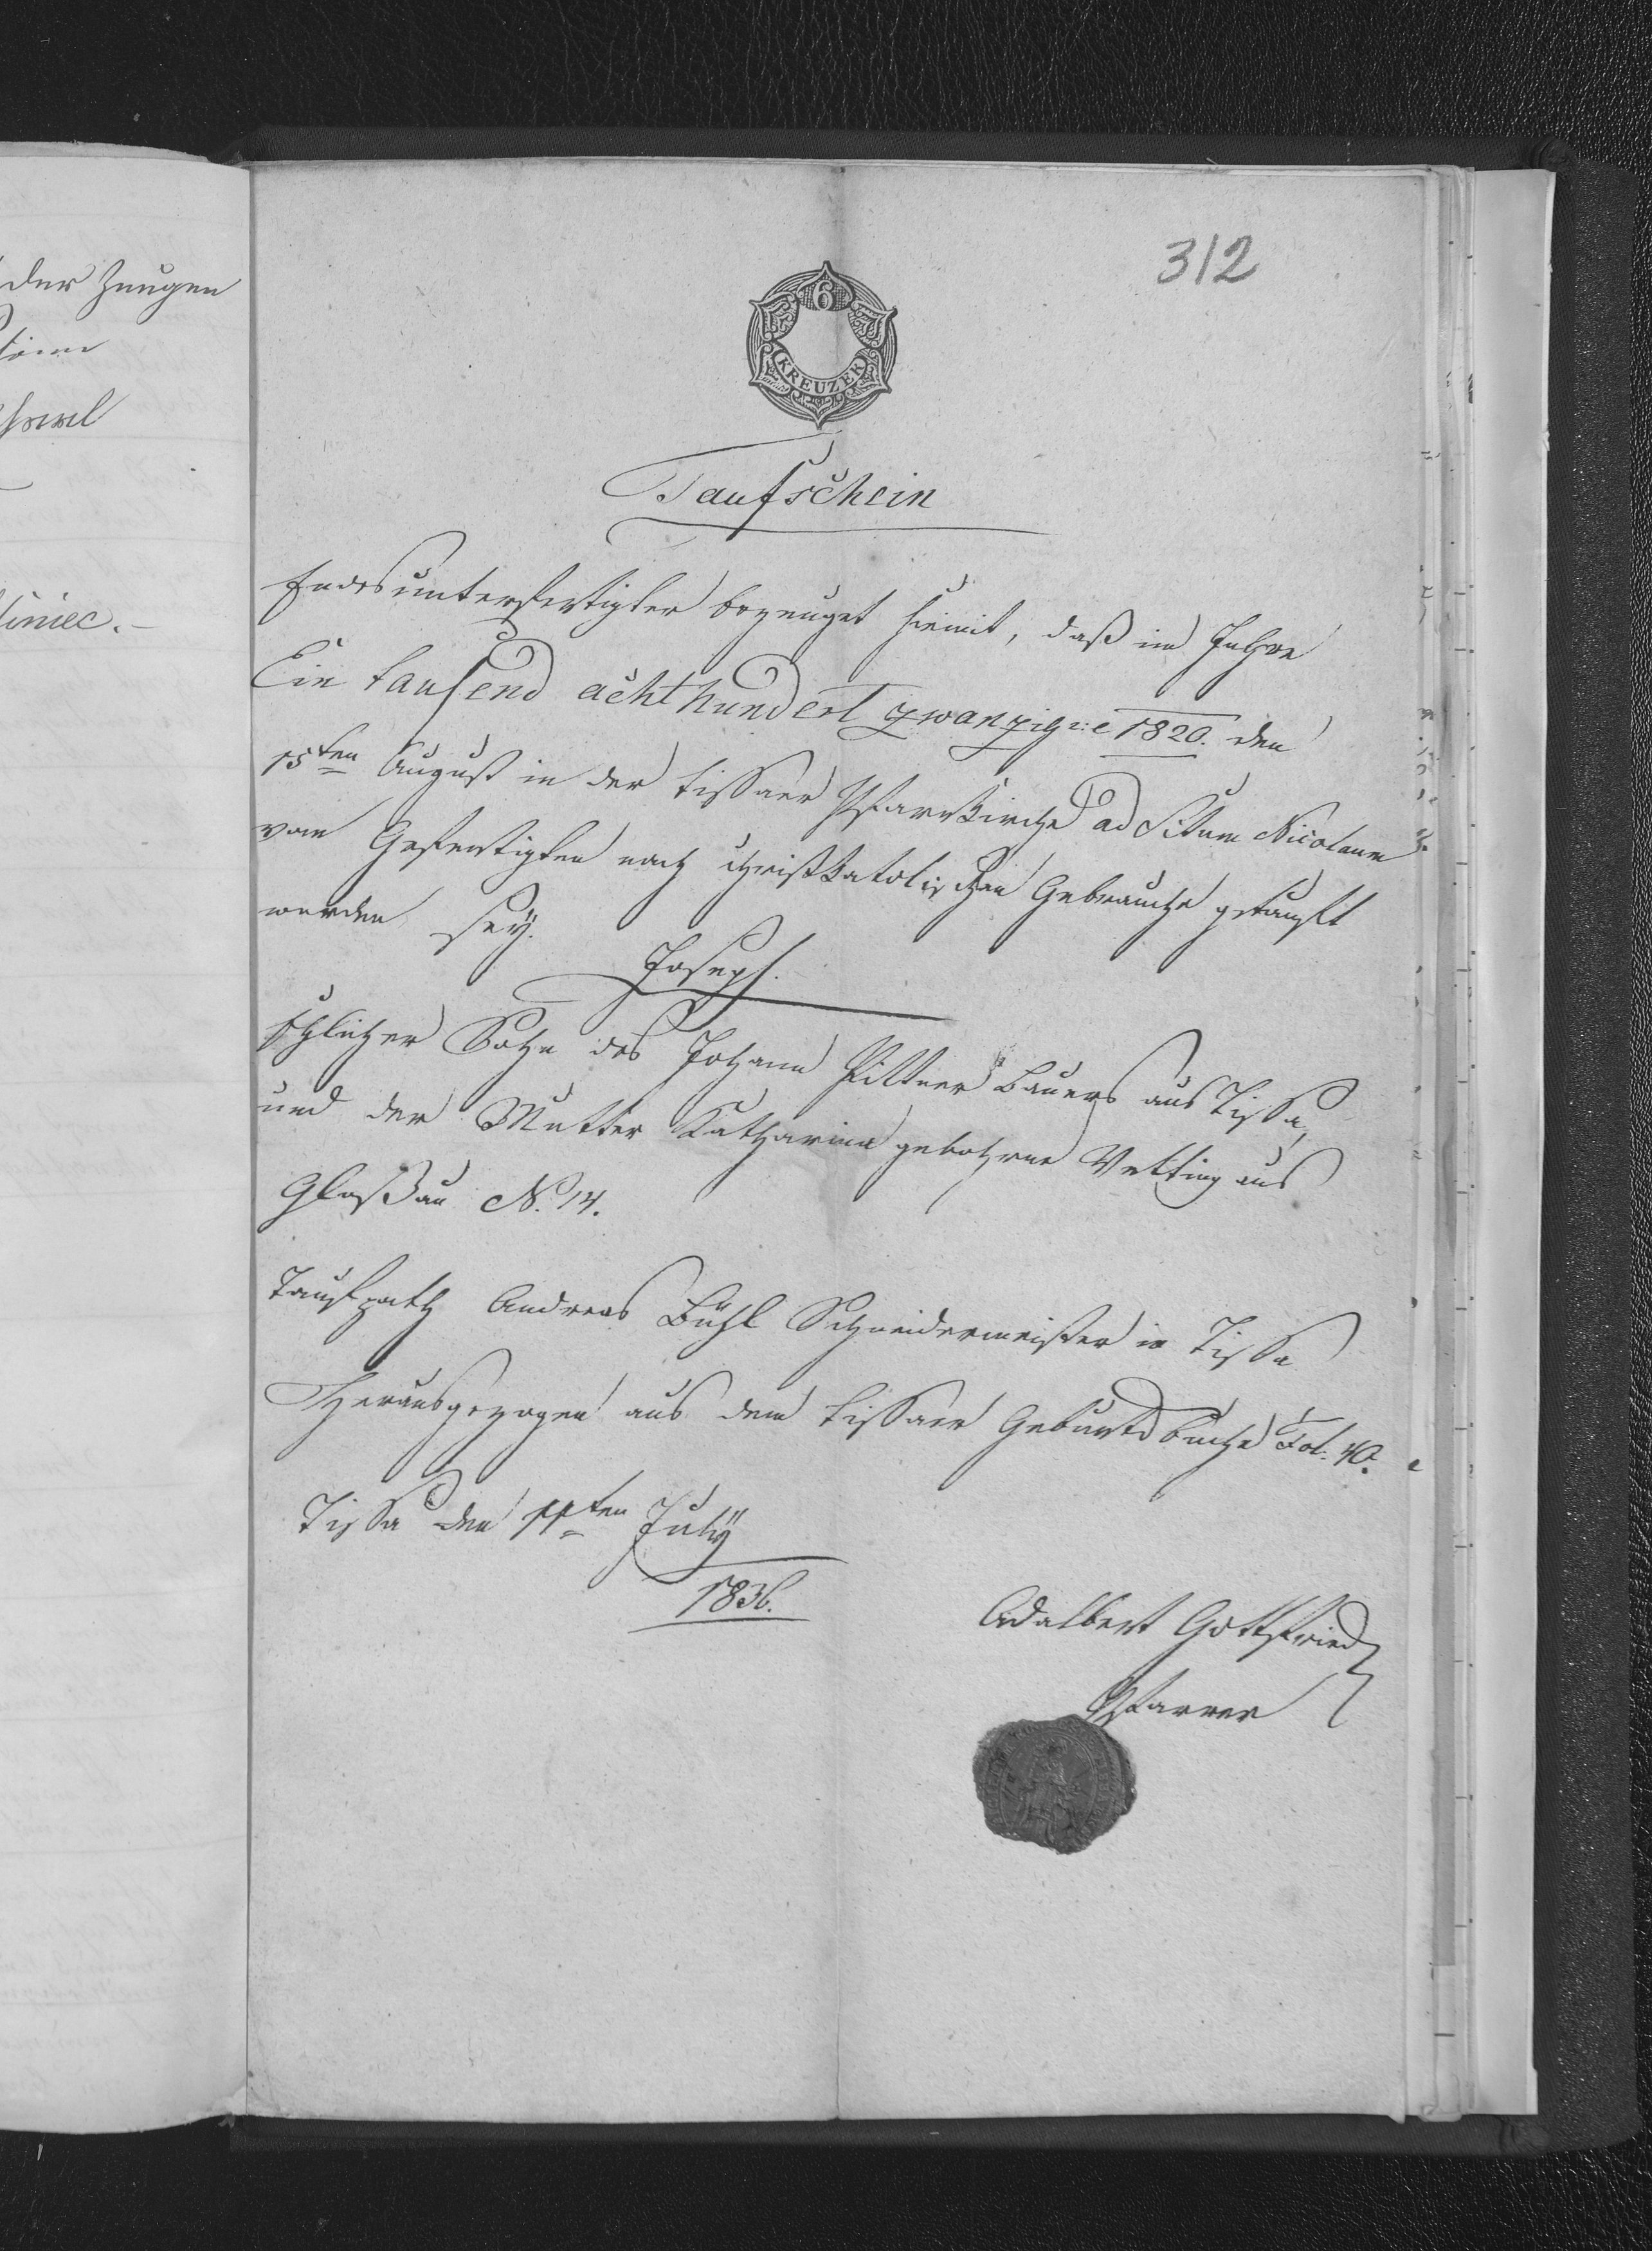 312
6
KREUZER
Taufschein
Endesunterfertigter bezeuget hiemit, daß im Jahre
Ein tausend achthundert zwanzig 1820. den
15ten August in der tissaer Pfarrkirche ad Sctum Nicolaum
vom Gefertigten nach christkatolischen Gebrauche getauft
worden sey.
Joseph.
Ehlicher Sohn des Johann Pittner Bauers aus Tissa,
und der Mutter Katharina gebohrne Vetting aus
Gloßau N. 14.
Taufpath Andreas Buhl Schneidermeister in Tissa
Herausgezogen aus dem tissaer Geburtsbuche Fol. 40.
Tissa den 11ten July
1836.
Adalbert Gottfried
Pfarrer
der Zeugen